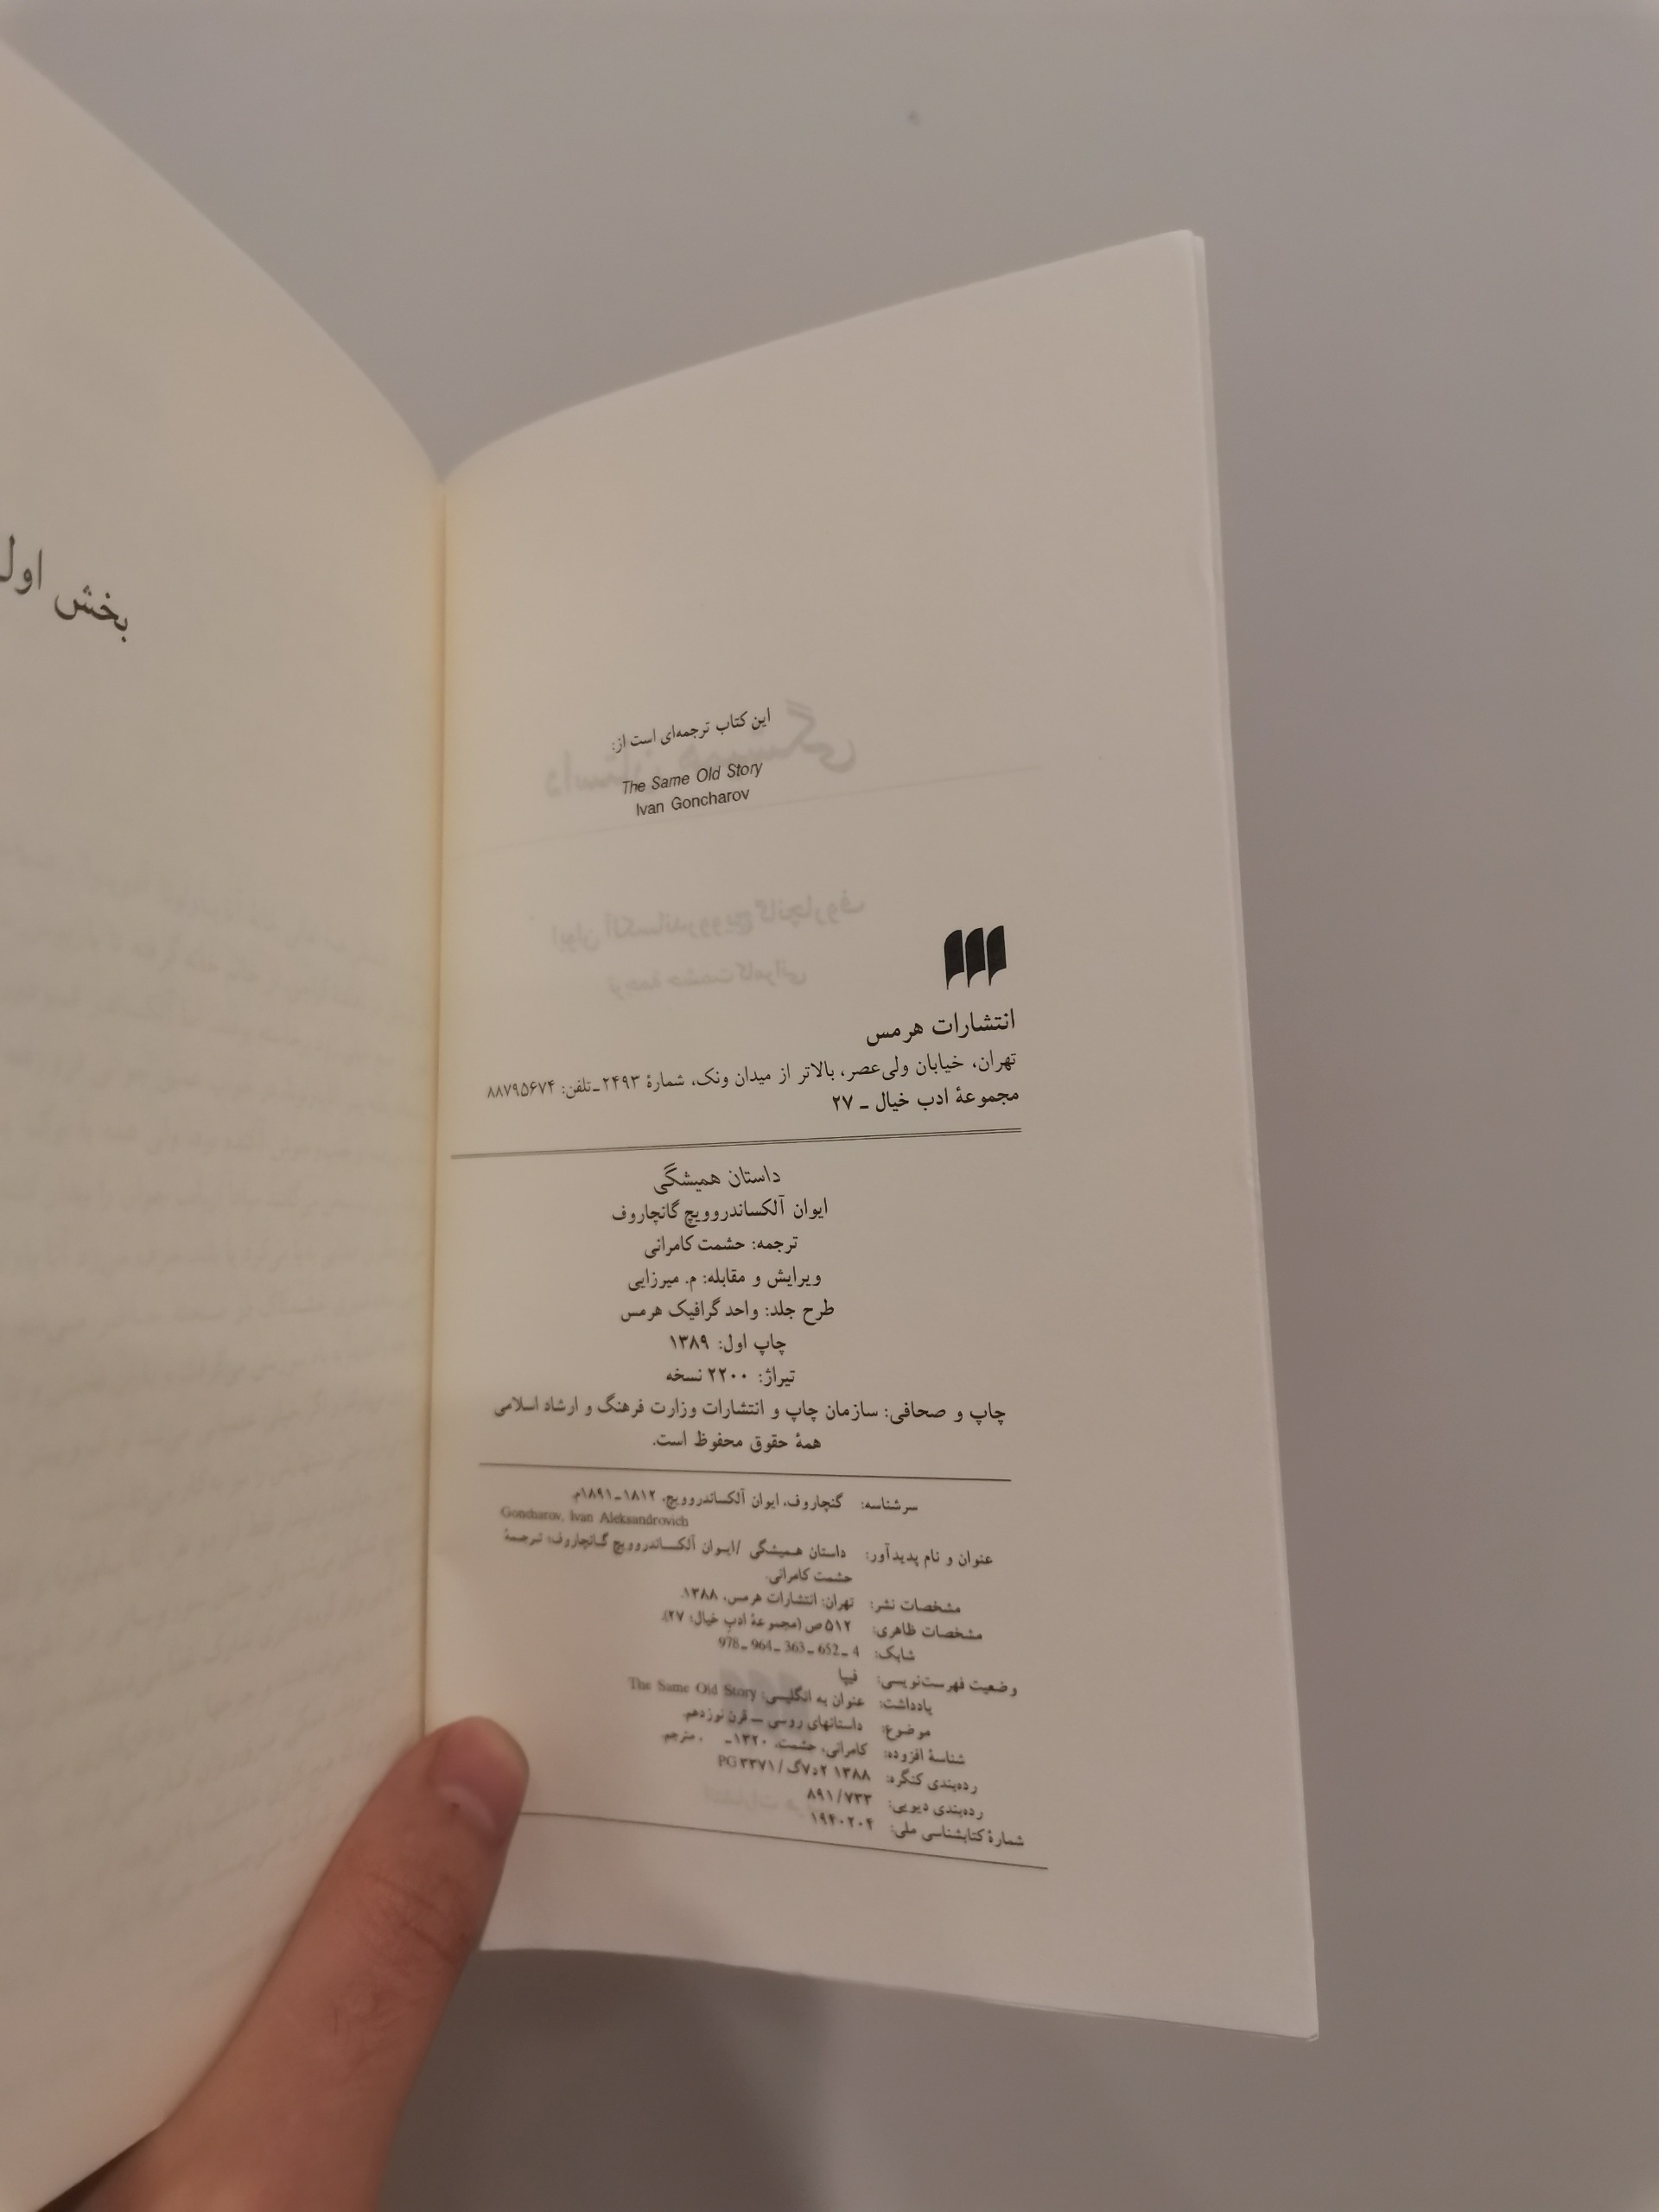 این کتاب ترجمه‌ای است از:
The Same Old Story
Ivan Goncharov
انتشارات هرمس
تهران، خیابان ولی‌عصر، بالاتر از میدان ونک، شمارهٔ ۲۴۹۳ ـ تلفن: ۸۸۷۹۵۶۷۴
مجموعهٔ ادب خیال ـ ۲۷
داستان همیشگی
ایوان آلکساندروویچ گانچاروف
ترجمه: حشمت کامرانی
ویرایش و مقابله: م. میرزایی
طرح جلد: واحد گرافیک هرمس
چاپ اول: ۱۳۸۹
تیراژ: ۲۲۰۰ نسخه
چاپ و صحافی: سازمان چاپ و انتشارات وزارت فرهنگ و ارشاد اسلامی
همهٔ حقوق محفوظ است.
سرشناسه: گنچاروف، ایوان آلکساندروویچ، ۱۸۱۲ـ۱۸۹۱م.
Goncharov, Ivan Aleksandrovich
عنوان و نام پدیدآور: داستان همیشگی /ایوان آلکساندروویچ گانچاروف؛ ترجمهٔ
حشمت کامرانی.
مشخصات نشر: تهران: انتشارات هرمس، ۱۳۸۸.
مشخصات ظاهری: ۵۱۲ص (مجموعهٔ ادب خیال؛ ۲۷).
شابک: 978ـ 964ـ 363ـ 652ـ 4
وضعیت فهرست‌نویسی: فیپا
یادداشت: عنوان به انگلیسی: The Same Old Story
موضوع: داستانهای روسی — قرن نوزدهم.
شناسهٔ افزوده: کامرانی، حشمت، ۱۳۲۰ـ ، مترجم.
رده‌بندی کنگره: ۱۳۸۸ ۲د۷گ/ PG۳۳۷۱
رده‌بندی دیویی: ۸۹۱/۷۳۳
شمارهٔ کتابشناسی ملی: ۱۹۴۰۲۰۴
بخش اول